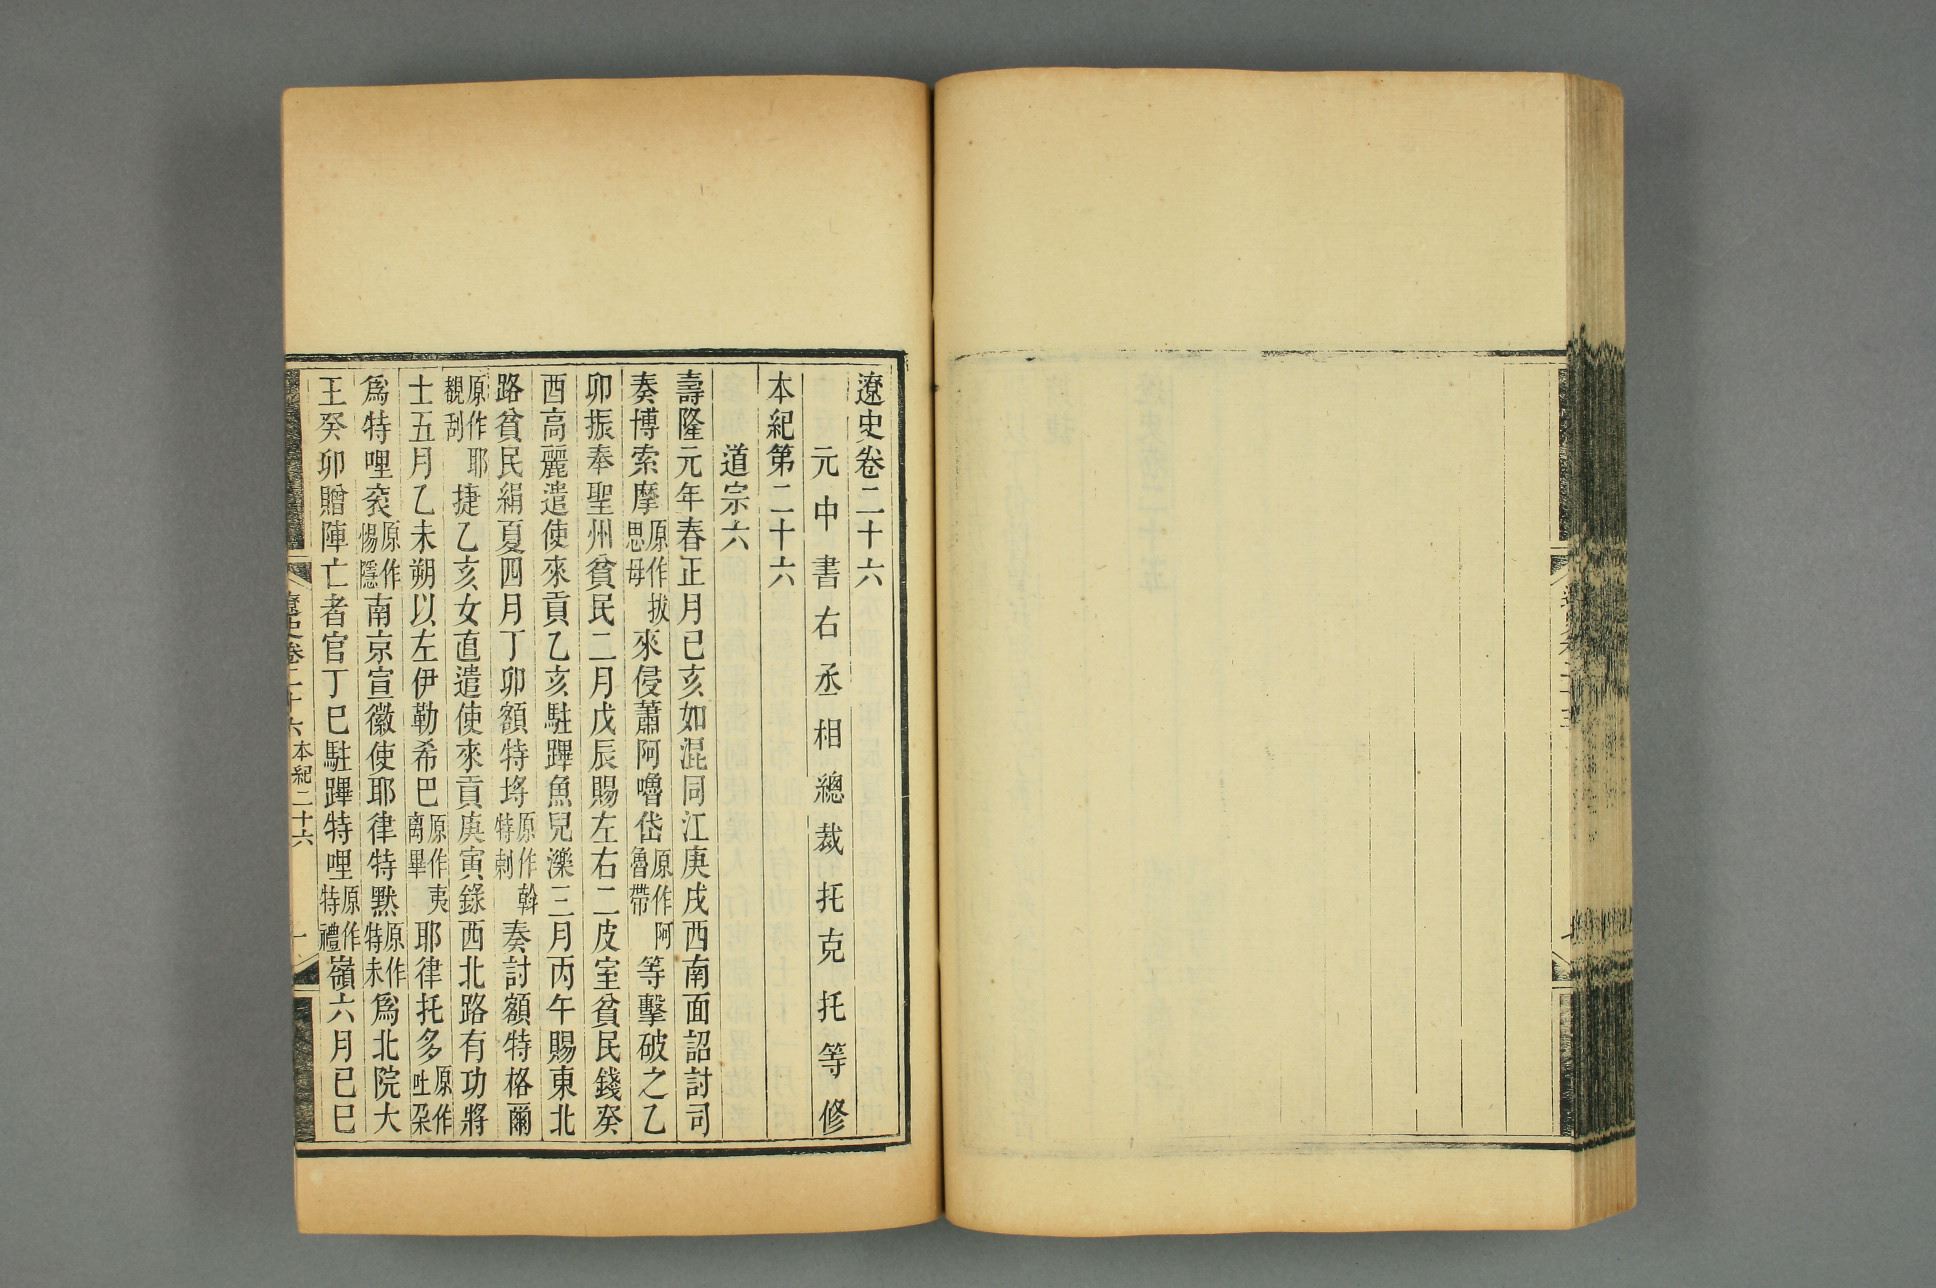 遼史卷二十六
元中書右丞相總裁托克托等修
本紀第二十六
道宗六
壽隆元年春正月己亥如混同江庚戌西南面詔討司
奏博索摩原作拔思母來侵蕭阿嚕岱原作阿魯帶等擊破之乙
卯振奉聖州貧民二月戊辰賜左右二皮室貧民錢癸
酉高麗遣使來貢乙亥駐蹕魚兒濼三月丙午賜東北
路貧民絹夏四月丁卯額特埓原作斡特剌奏討額特格爾
原作耶覩刮捷乙亥女直遣使來貢庚寅錄西北路有功將
士五月乙未朔以左伊勒希巴原作夷离畢耶律托多原作吐朶
爲特哩袞原作惕隱南京宣徽使耶律特默原作特末爲北院大
王癸卯贈陣亡者官丁巳駐蹕特哩原作特禮嶺六月己巳
遼史卷二十六 本紀二十六 一